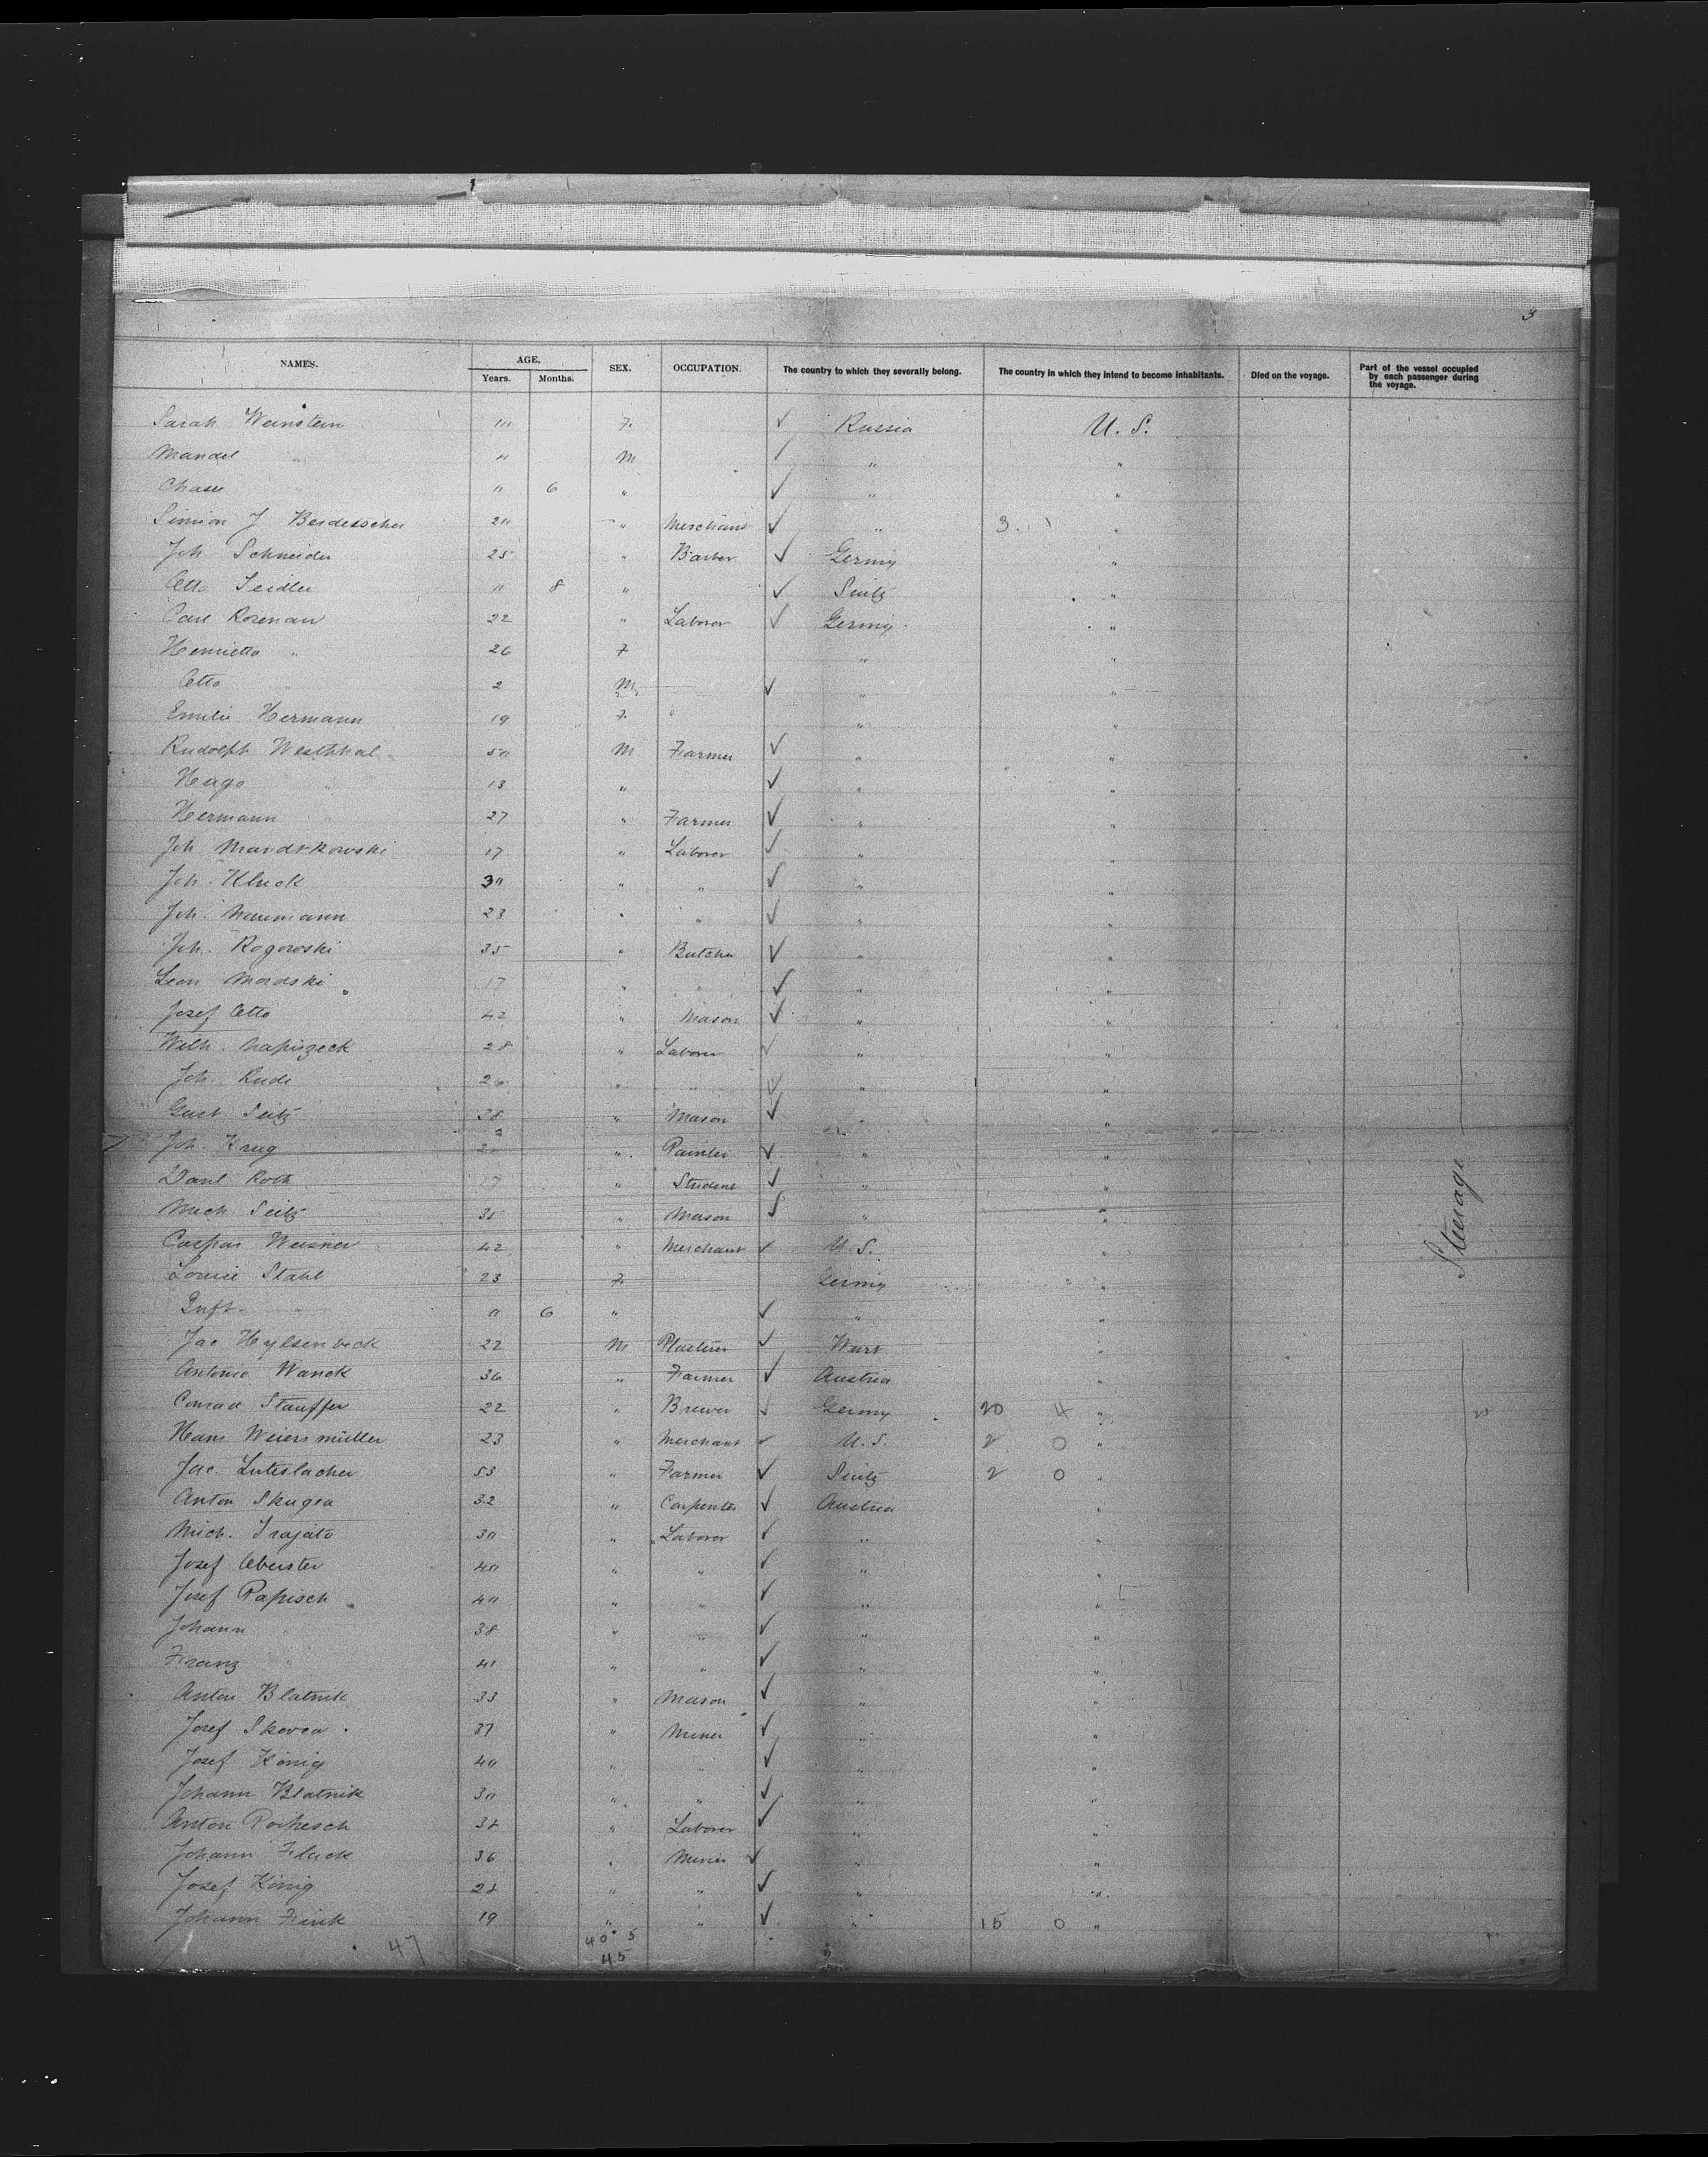 3
NAMES. AGE. SEX. OCCUPATION. The country to which they severally belong. The country in which they intend to become inhabitants. Died on the voyage. Part of the vessel occupied by each passenger during the voyage.
Years. Months.
Sarah Weinstein F. ✓ Russia U. S.
Mandel " M ✓ " "
" 6 " ✓ " "
Simion J " Merchant ✓ " 3 "
Joh. Schneider 25 " Barber ✓ Germy "
Otto Seidler 8 " ✓ "
Carl Rosenau 22 " Laborer ✓ Germy "
Henrietta " 26 F " "
Otto 2 M ✓ " "
Emilie Hermann 19 F. " "
Rudolph Westphal M Farmer ✓ " "
Hugo " 13 " ✓ " "
Hermann " 27 " Farmer ✓ " "
Joh 17 " Laborer ✓ " "
Joh. Kluck " " ✓ " "
Joh. Naumann 23 " " ✓ " "
Joh. Rogowski 35 " Butcher ✓ " "
Leon 17 " " ✓ " "
Josef Otto 42 " Mason ✓ " "
Wilh. 28 " Laborer ✓ " "
Joh. " " ✓ " "
Gust Seitz 38 " Mason ✓ " "
Joh. Krug " Painter ✓ " "
Danl Roth 27 " Student ✓ " "
Mich Seitz 35 " Mason ✓ " "
Caspar 42 " Merchant ✓ U. S. "
Louise Stahl 23 F. Germy "
Inft. " 6 " ✓ " "
Jac Hylsenbeck 22 M Plasterer ✓ Wurt "
Antonio Wanek 36 " Farmer ✓ Austria "
Conrad Stauffer 22 " Brewer ✓ Germy 20 4 "
Hans Weiersmüller 23 " Merchant ✓ U. S. 2 0 "
Jac. 53 " Farmer ✓ 2 0 "
Anton Skugea 32 " Carpenter ✓ Austria "
Mich. " Laborer ✓ " "
Josef Oberster " " ✓ " "
Josef Papisch " " ✓ " "
Johann " 38 " " ✓ " "
Franz " 41 " " ✓ " "
Anton Blatnik 33 " Mason ✓ " "
Josef Skovca 37 " Miner ✓ " "
Josef König " " ✓ " "
Johann Blatnik " " ✓ " "
Anton " Laborer ✓ " "
Johann 36 " Miner ✓ " "
Josef König 28 " " ✓ " "
Johann Fink 19 " " ✓ " 15 0 "
47 40 5
45
Steerage